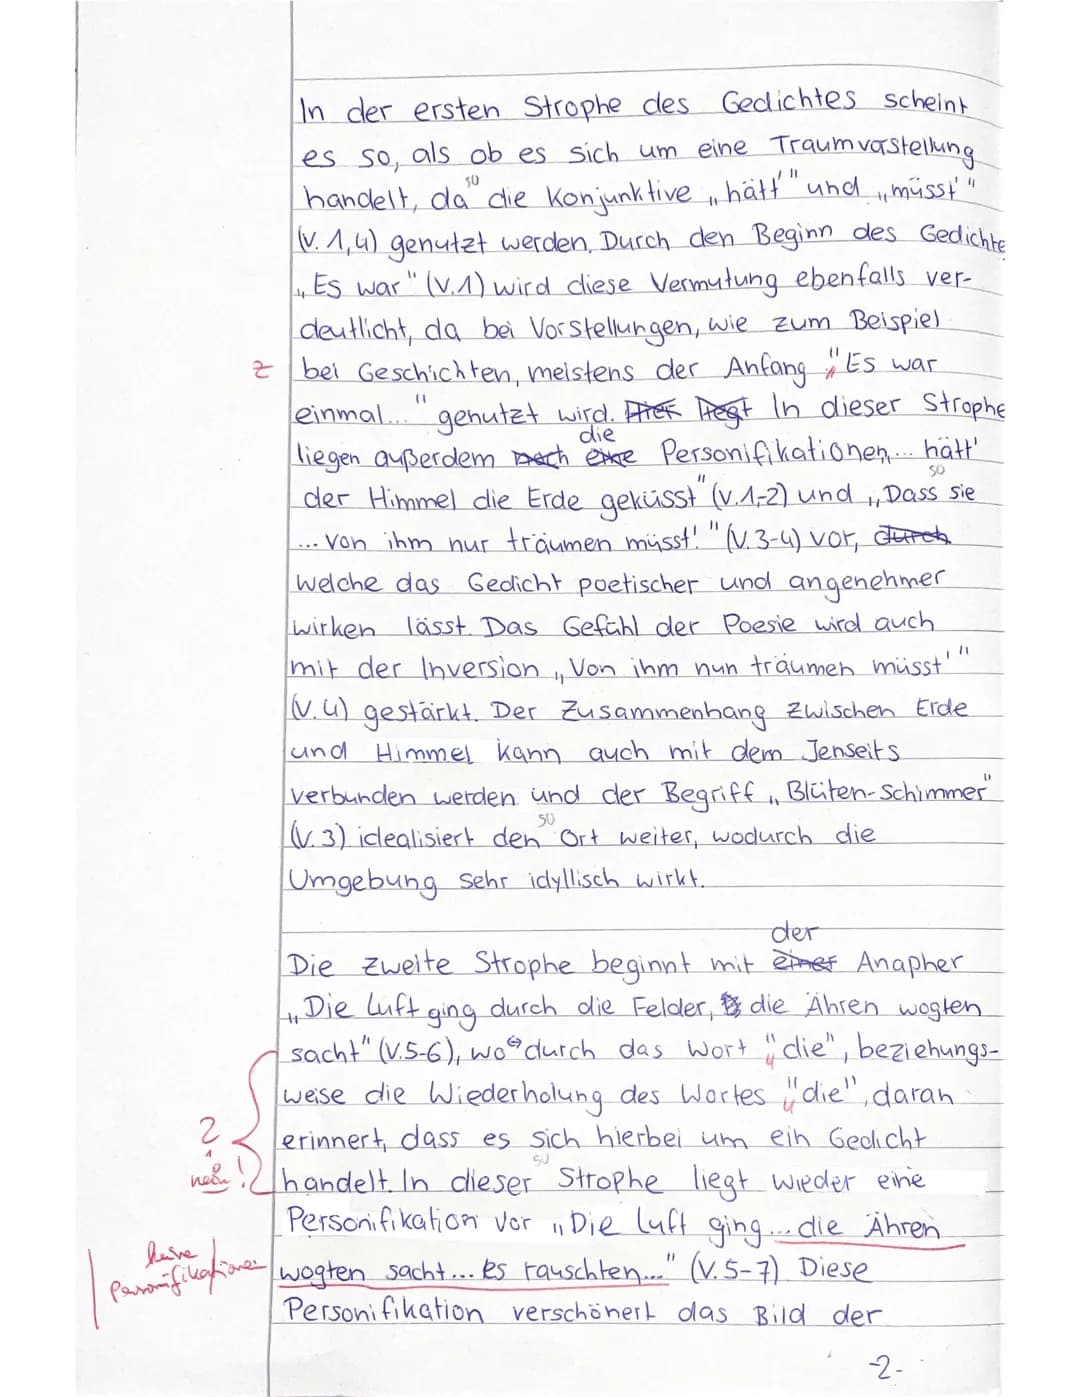 In der ersten Strophe des Gedichtes scheint
es so, als ob es sich um eine Traumvorstellung
50
handelt, da die Konjunktive „hätt'" und „müsst'"
(V. 1,4) genutzt werden. Durch den Beginn des Gedichte
„Es war" (V.1) wird diese Vermutung ebenfalls ver-
deutlicht, da bei Vorstellungen, wie zum Beispiel
Z bei Geschichten, meistens der Anfang "Es war
einmal..." genutzt wird. Hier liegt In dieser Strophe
die
liegen außerdem noch eine Personifikationen „... hätt'
50
der Himmel die Erde geküsst" (V.1-2) und „Dass sie
... von ihm nur träumen müsst'" (V.3-4) vor, durch
welche das Gedicht poetischer und angenehmer
wirken lässt. Das Gefühl der Poesie wird auch
mit der Inversion „Von ihm nun träumen müsst'"
(V.4) gestärkt. Der Zusammenhang zwischen Erde
und Himmel kann auch mit dem Jenseits
verbunden werden und der Begriff „Blüten-Schimmer"
50
(V.3) idealisiert den Ort weiter, wodurch die
Umgebung sehr idyllisch wirkt.
der
Die zweite Strophe beginnt mit einer Anapher
„Die Luft ging durch die Felder, die Ähren wogten
sacht" (V.5-6), wodurch das Wort "die", beziehungs-
weise die Wiederholung des Wortes "die", daran
? erinnert, dass es sich hierbei um ein Gedicht
50
nein! handelt. In dieser Strophe liegt wieder eine
Personifikation vor „Die Luft ging... die Ähren
keine
Personifikationen wogten sacht... Es rauschten..." (V.5-7) Diese
Personifikation verschönert das Bild der
-2-